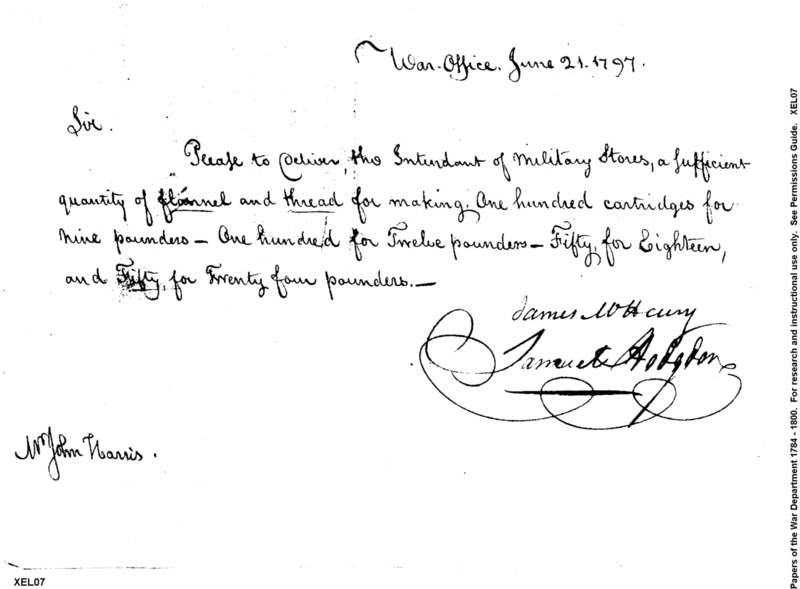 War Office. June 21. 1797.
Sir.
Please to deliver, the Intendant of Military Stores, a sufficient
quantity of flannel and thread for making, One hundred cartridges for
Nine pounders — One hundred for Twelve pounders — Fifty, for Eighteen,
and Fifty, for Twenty four pounders. —
James McHenry
Samuel Hodgdon
Mr John Harris.
XEL07
Papers of the War Department 1784 - 1800. For research and instructional use only. See Permissions Guide. XEL07